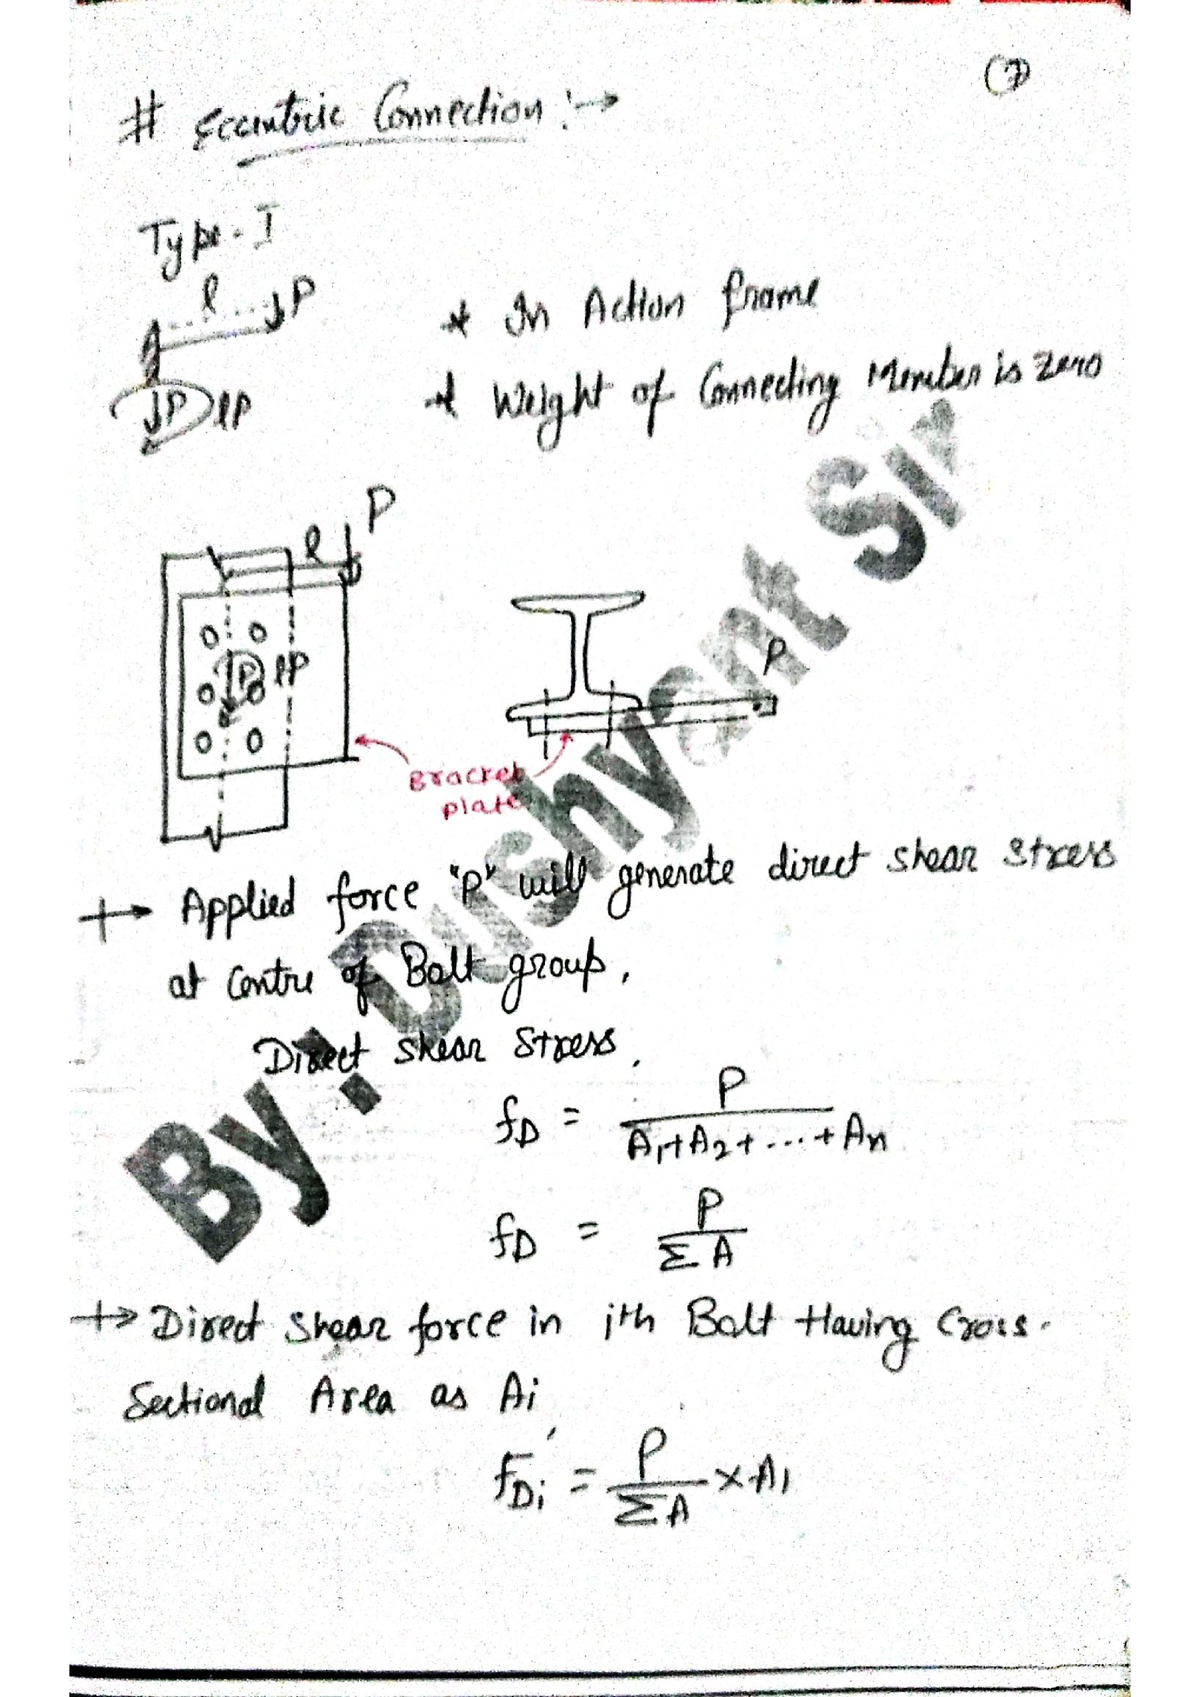 (7)
# Eccentric Connection :→
Type - I
l P
P lP
* In Action frame
* Weight of Connecting Member is zero
P
l
P lP
P
Bracket
plate
By: Dushyant Si
+→ Applied force "P" will generate direct shear stress
at Centre of Bolt group.
Direct shear stress,
fD = P / A1+A2+...+An
fD = P / Σ A
+→ Direct Shear force in ith Bolt Having Cross-
Sectional Area as Ai
FDi = P / ΣA × Ai